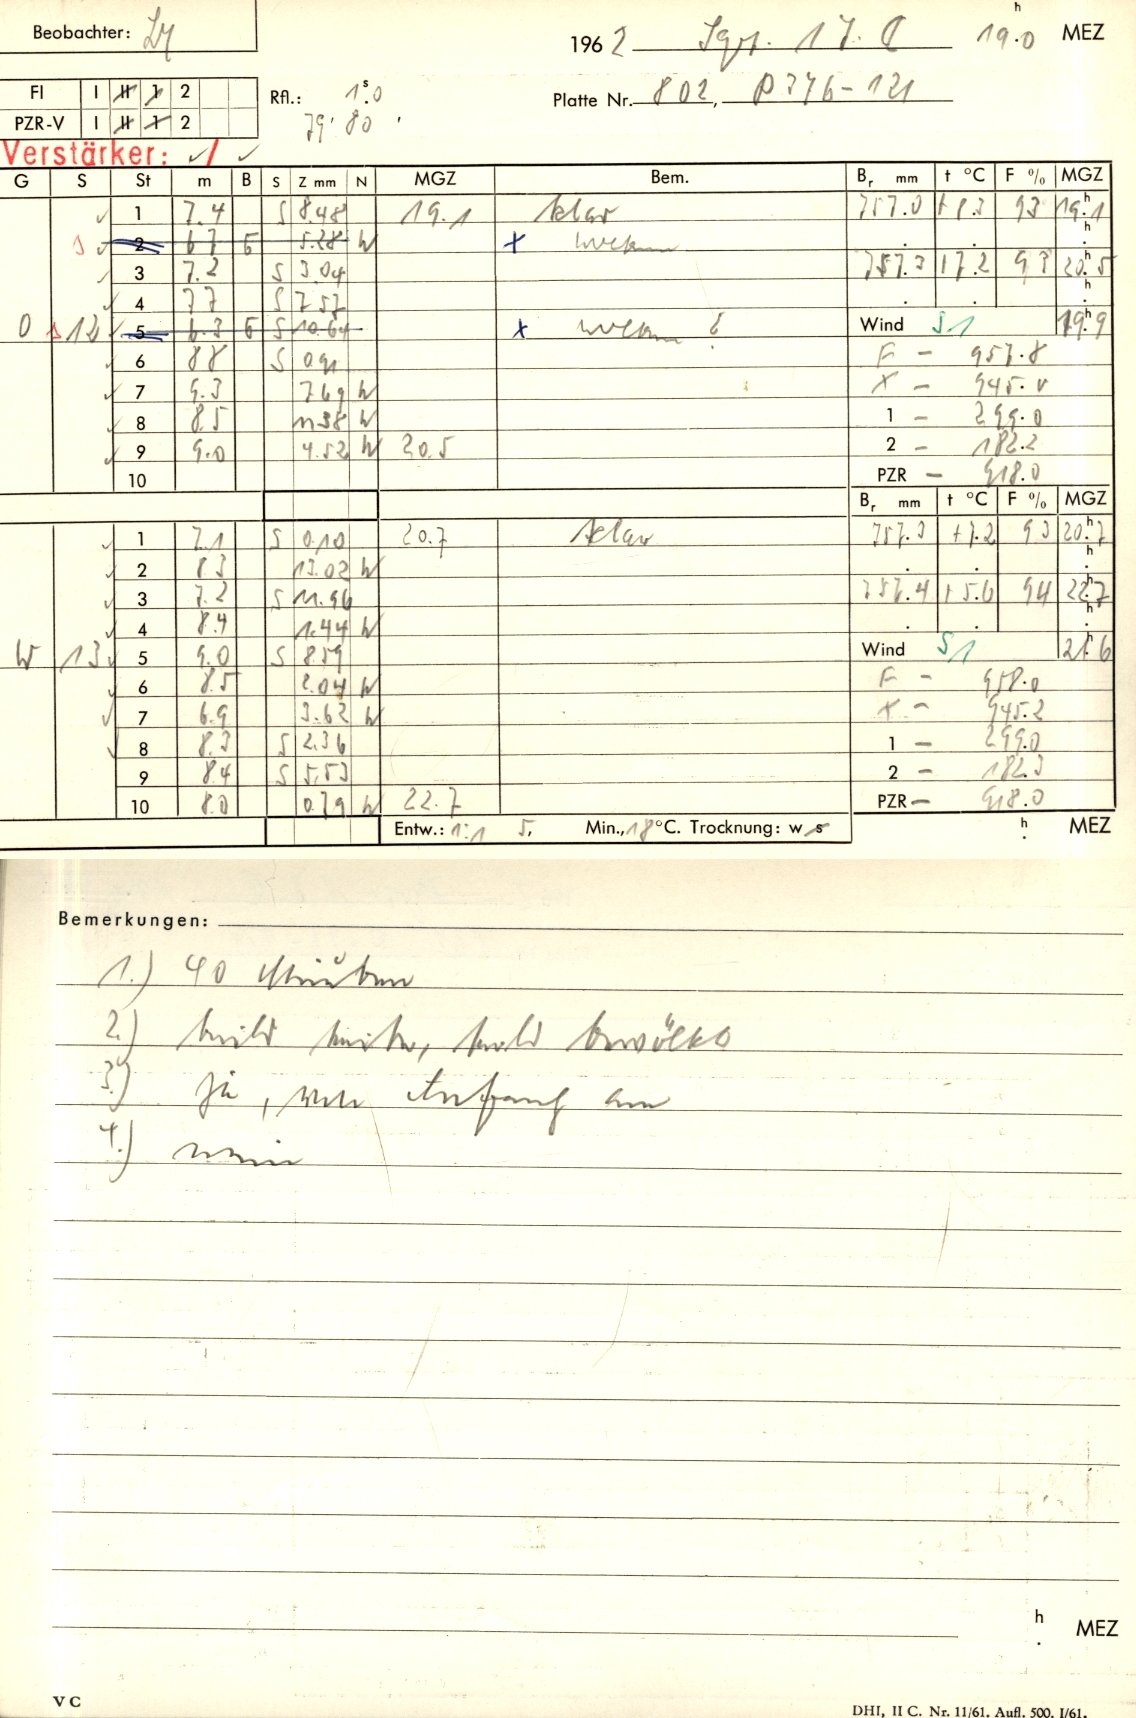 Beobachter:
196 2 Sept. 17. 19.0 h MEZ
FI I II 1 2
Rfl.: 1.s0
Platte Nr. 802, P 376-121
PZR-V I II 1 2
79' 80
Verstärker: ✓ / ✓
G S St m B S Z mm N MGZ Bem. Br mm t °C F % MGZ
✓ 1 7.4 S 8.48 19.1 klar 757.0 93 19.h1
s ✓ 2 6.7 5.28 W x
✓ 3 7.2 S 3.04 757.3 +7.2 93 20.h5
✓ 4 7.7 S 7.57
0 s 12 ✓ 5 6.3 S 10.64 x Wind S1 19.h9
✓ 6 8.8 S 0.91 F – 957.8
✓ 7 9.3 7.69 W X – 945.0
✓ 8 8.5 11.38 W 1 – 299.0
✓ 9 9.0 4.52 W 20.5 2 – 182.2
10 PZR – 918.0
Br mm t °C F % MGZ
✓ 1 7.1 S 0.10 20.7 klar 757.3 +7.2 93 20.h7
✓ 2 8.3 13.02 W
✓ 3 7.2 S 11.96 757.4 +5.6 94 22.h7
✓ 4 8.4 1.44 W
W 13 ✓ 5 9.0 S 8.59 Wind S1 21.h6
✓ 6 8.5 2.04 W F – 958.0
✓ 7 6.9 3.62 W X – 945.2
✓ 8 8.3 S 2.36 1 – 299.0
9 8.4 S 5.53 2 – 182.3
10 8.0 0.79 W 22.7 PZR – 918.0
Entw.: 1:1 5, Min., 18 °C. Trocknung: w s h MEZ
Bemerkungen:
1.) 40 Minuten
2.) bald bewölkt
3.) ja, von Anfang an
4.) nein
h MEZ
V C
DHI, II C. Nr. 11/61. Aufl. 500. I/61.